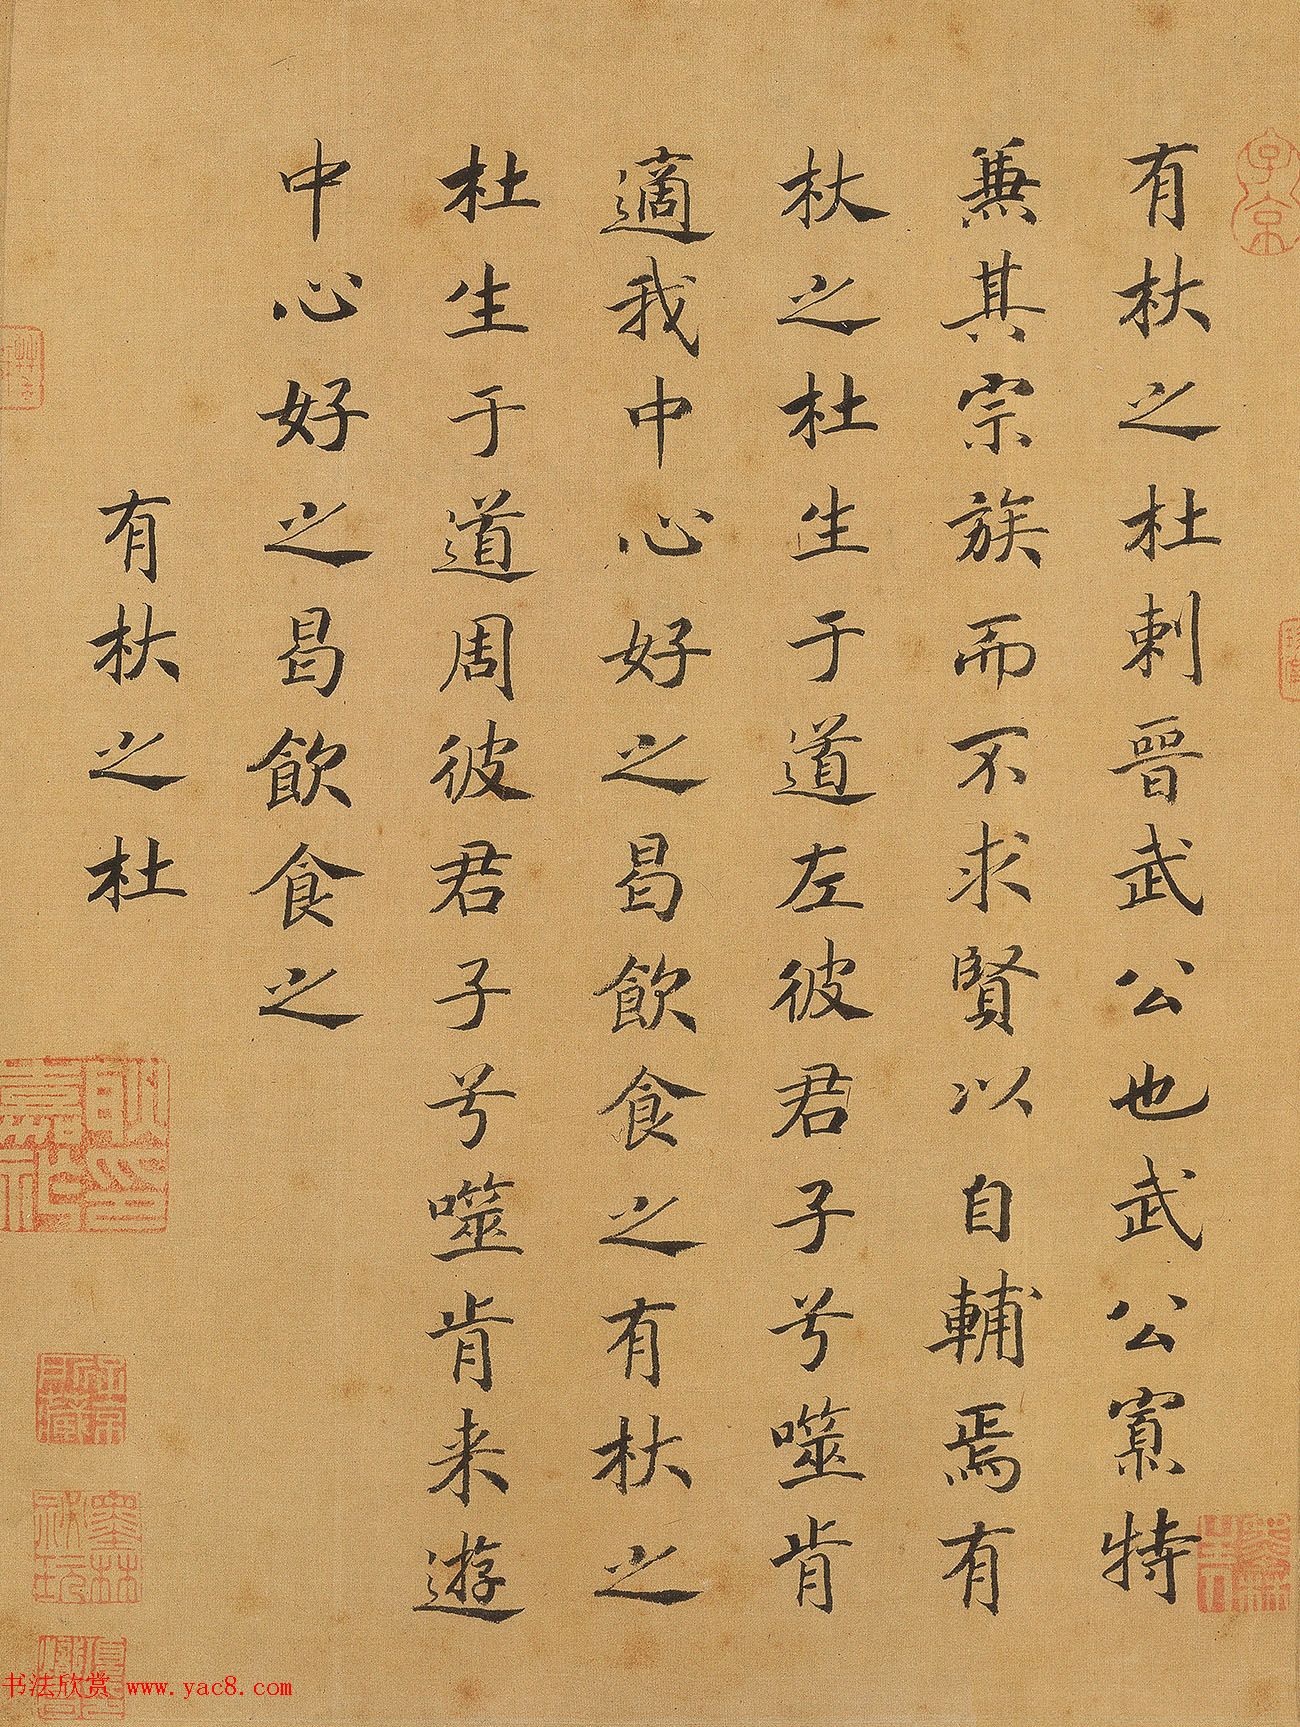 有杕之杜刺晉武公也武公寡特
兼其宗族而不求賢以自輔焉有
杕之杜生于道左彼君子兮噬肯
適我中心好之曷飲食之有杕之
杜生于道周彼君子兮噬肯来遊
中心好之曷飲食之
有杕之杜
子京
墨林秘玩
书法欣赏 www.yac8.com